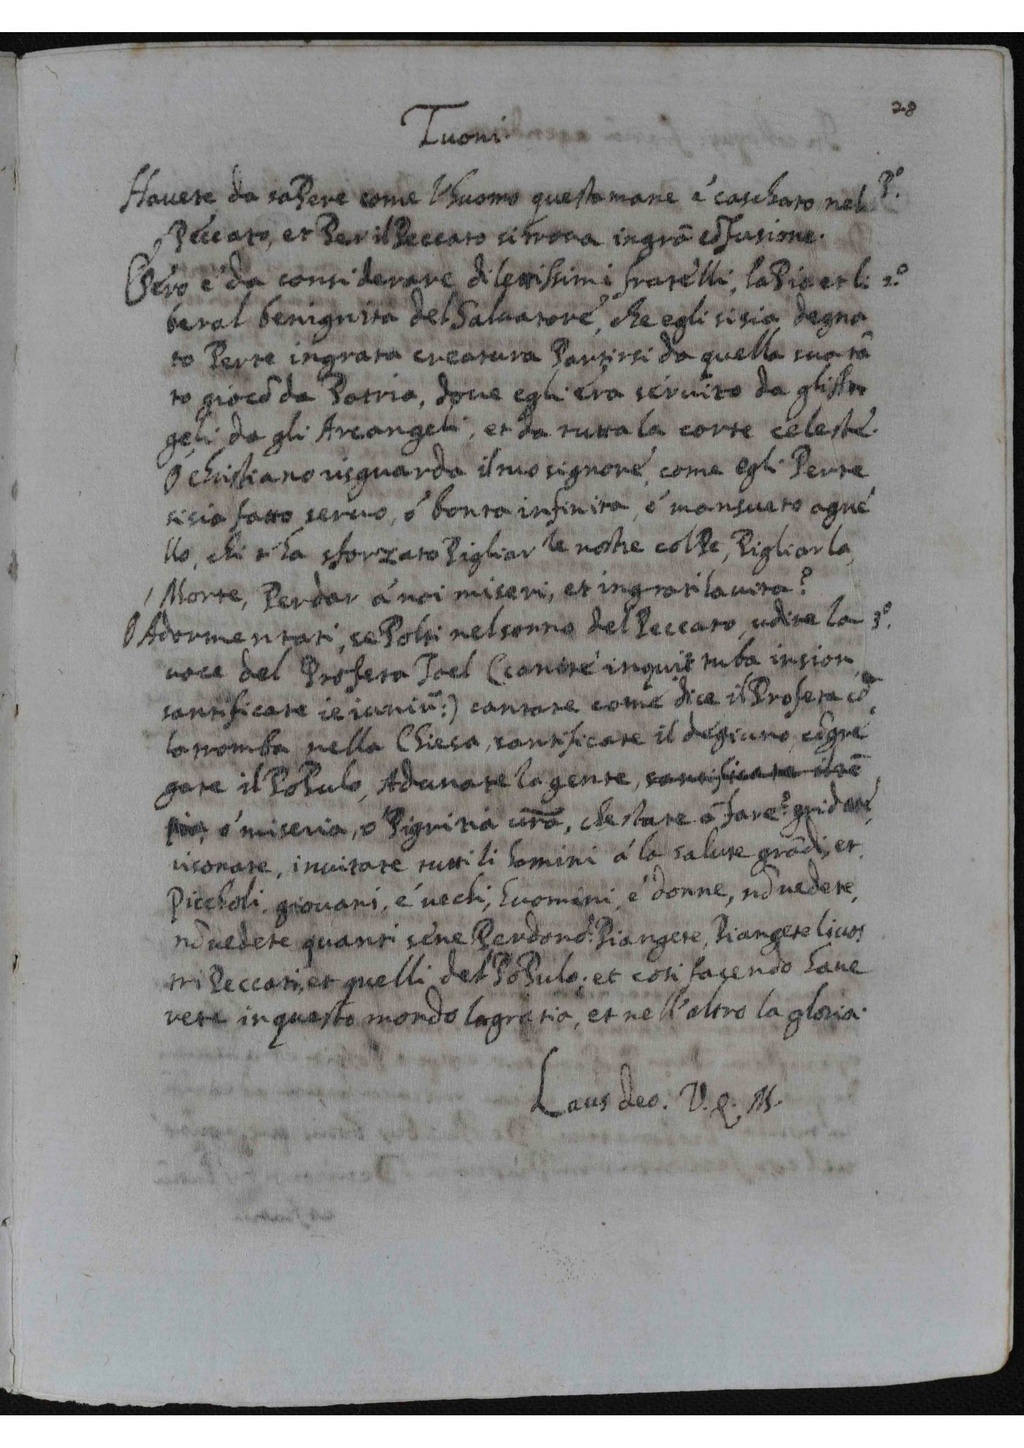 28
Tuoni
Havete da saPere come l'huomo questa mane é caschato nel P.º
Peccato, et Per il Peccato si trova in grā cōfusione.
Però é da considerare dilettissimi fratelli, la Pia et li 2.º
beral benignità del Salvatore, che egli si sia degna
to Per te ingrata creatura Partirsi da quella sua tā
to giocōda Patria, dove egli era servito da gli An
geli, da gli Arcangeli, et da tutta la corte celeste.
O Christiano risguarda il tuo signore, come egli Per te
si sia fatto servo, ó bonta infinita, ó mansueto agne
llo, chi t'ha sforzato Pigliar le nostre colPe, Pigliar la
Morte, Per dar á noi miseri, et ingrati la vita?
O Adormentati, sePolti nel sonno del Peccato, udite la 3.º
voce del Profeta Joel (canite inquit tuba in sion
santificate ieiuniū:) cantate come dice il Profeta cō
la tromba nella Chiesa, santificate il degiuno, cōgre
gate il PoPulo, Adunate la gente, santificate il tē
pio, ó miseria, o Pigritia vrā, che state á fare? gridate,
risonate, invitate tutti li homini á la salute grādi, et
Piccholi, giovani, é vechi, huomini, é donne, nō vedete,
nō vedete quanti sene Perdono? Piangete, Piangete li vos
tri Peccati, et quelli del PoPulo, et cosi facendo have
rete in questo mondo la gratia, et nell'altro la gloria.
Laus deo. V. Q. M.